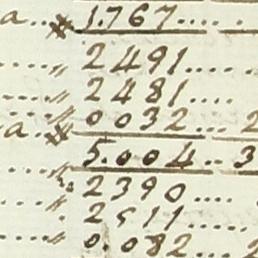 a.. 1.767.....
.... " 2491.... .
.... " 2481....
.... " 0032... 2
a.. 5.004.. 3
.... 2390....
.... " 2511.....
.... " 0.082... 2